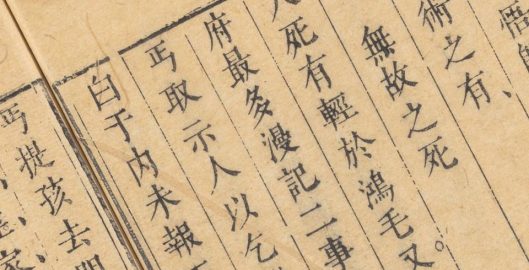 術之有、
無故之死
死有輕於鴻毛又。
府最多漫記二事
丐取示人以乞
白于内未報
丐提孩去